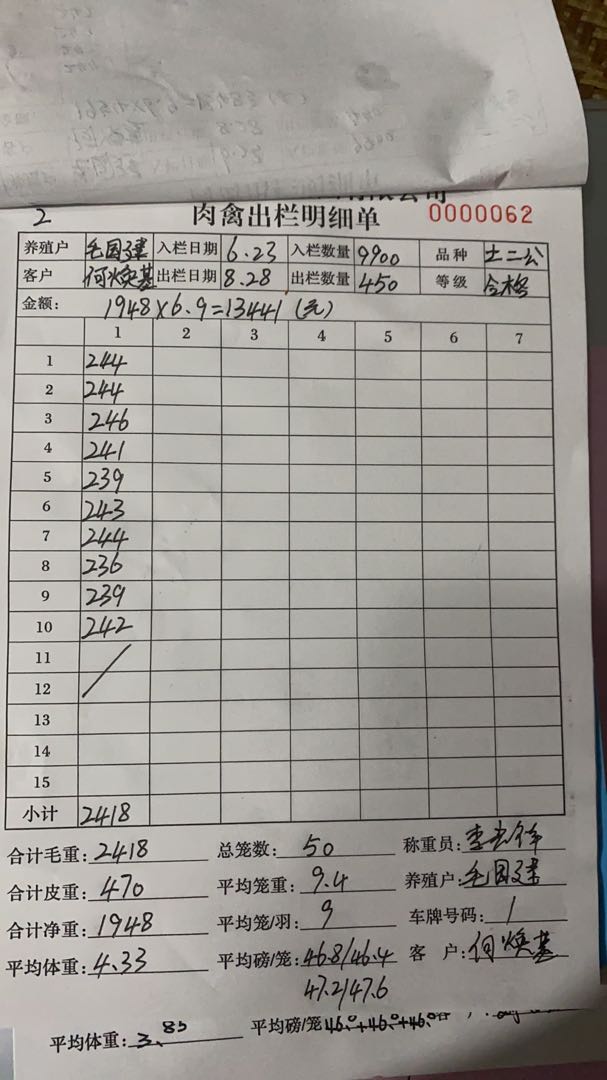 2
肉禽出栏明细单 0000062
养殖户 毛国建 入栏日期 6.23 入栏数量 9900 品种 土二公
客户 何焕基 出栏日期 8.28 出栏数量 450 等级 合格
金额: 1948×6.9=13441(元)
1 2 3 4 5 6 7
1 244
2 244
3 246
4 241
5 239
6 243
7 244
8 236
9 239
10 242
11
12
13
14
15
小计 2418
合计毛重: 2418 总笼数: 50 称重员:
合计皮重: 470 平均笼重: 9.4 养殖户: 毛国建
合计净重: 1948 平均笼/羽: 9 车牌号码: /
平均体重: 4.33 平均磅/笼: 46.8/46.4 客 户: 何焕基
47.2/47.6
平均体重: 3.85 平均磅/笼 46.0+46.0+46.0